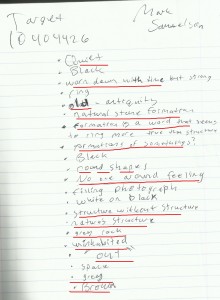 Target
Mark
Samuelson
10404426
• Quiet
• Black
• worn down with time but strong
• ring
• old - antiquity
• natural stone formation
• formation is a word that seems
to ring more true than structure
• formations of something?
• Bleek
• round shapes
• No one around feeling
• photograph
• white on black
• structure without structure
• natures structure
• grey rock
• OUT
• space
• grey
• Brown